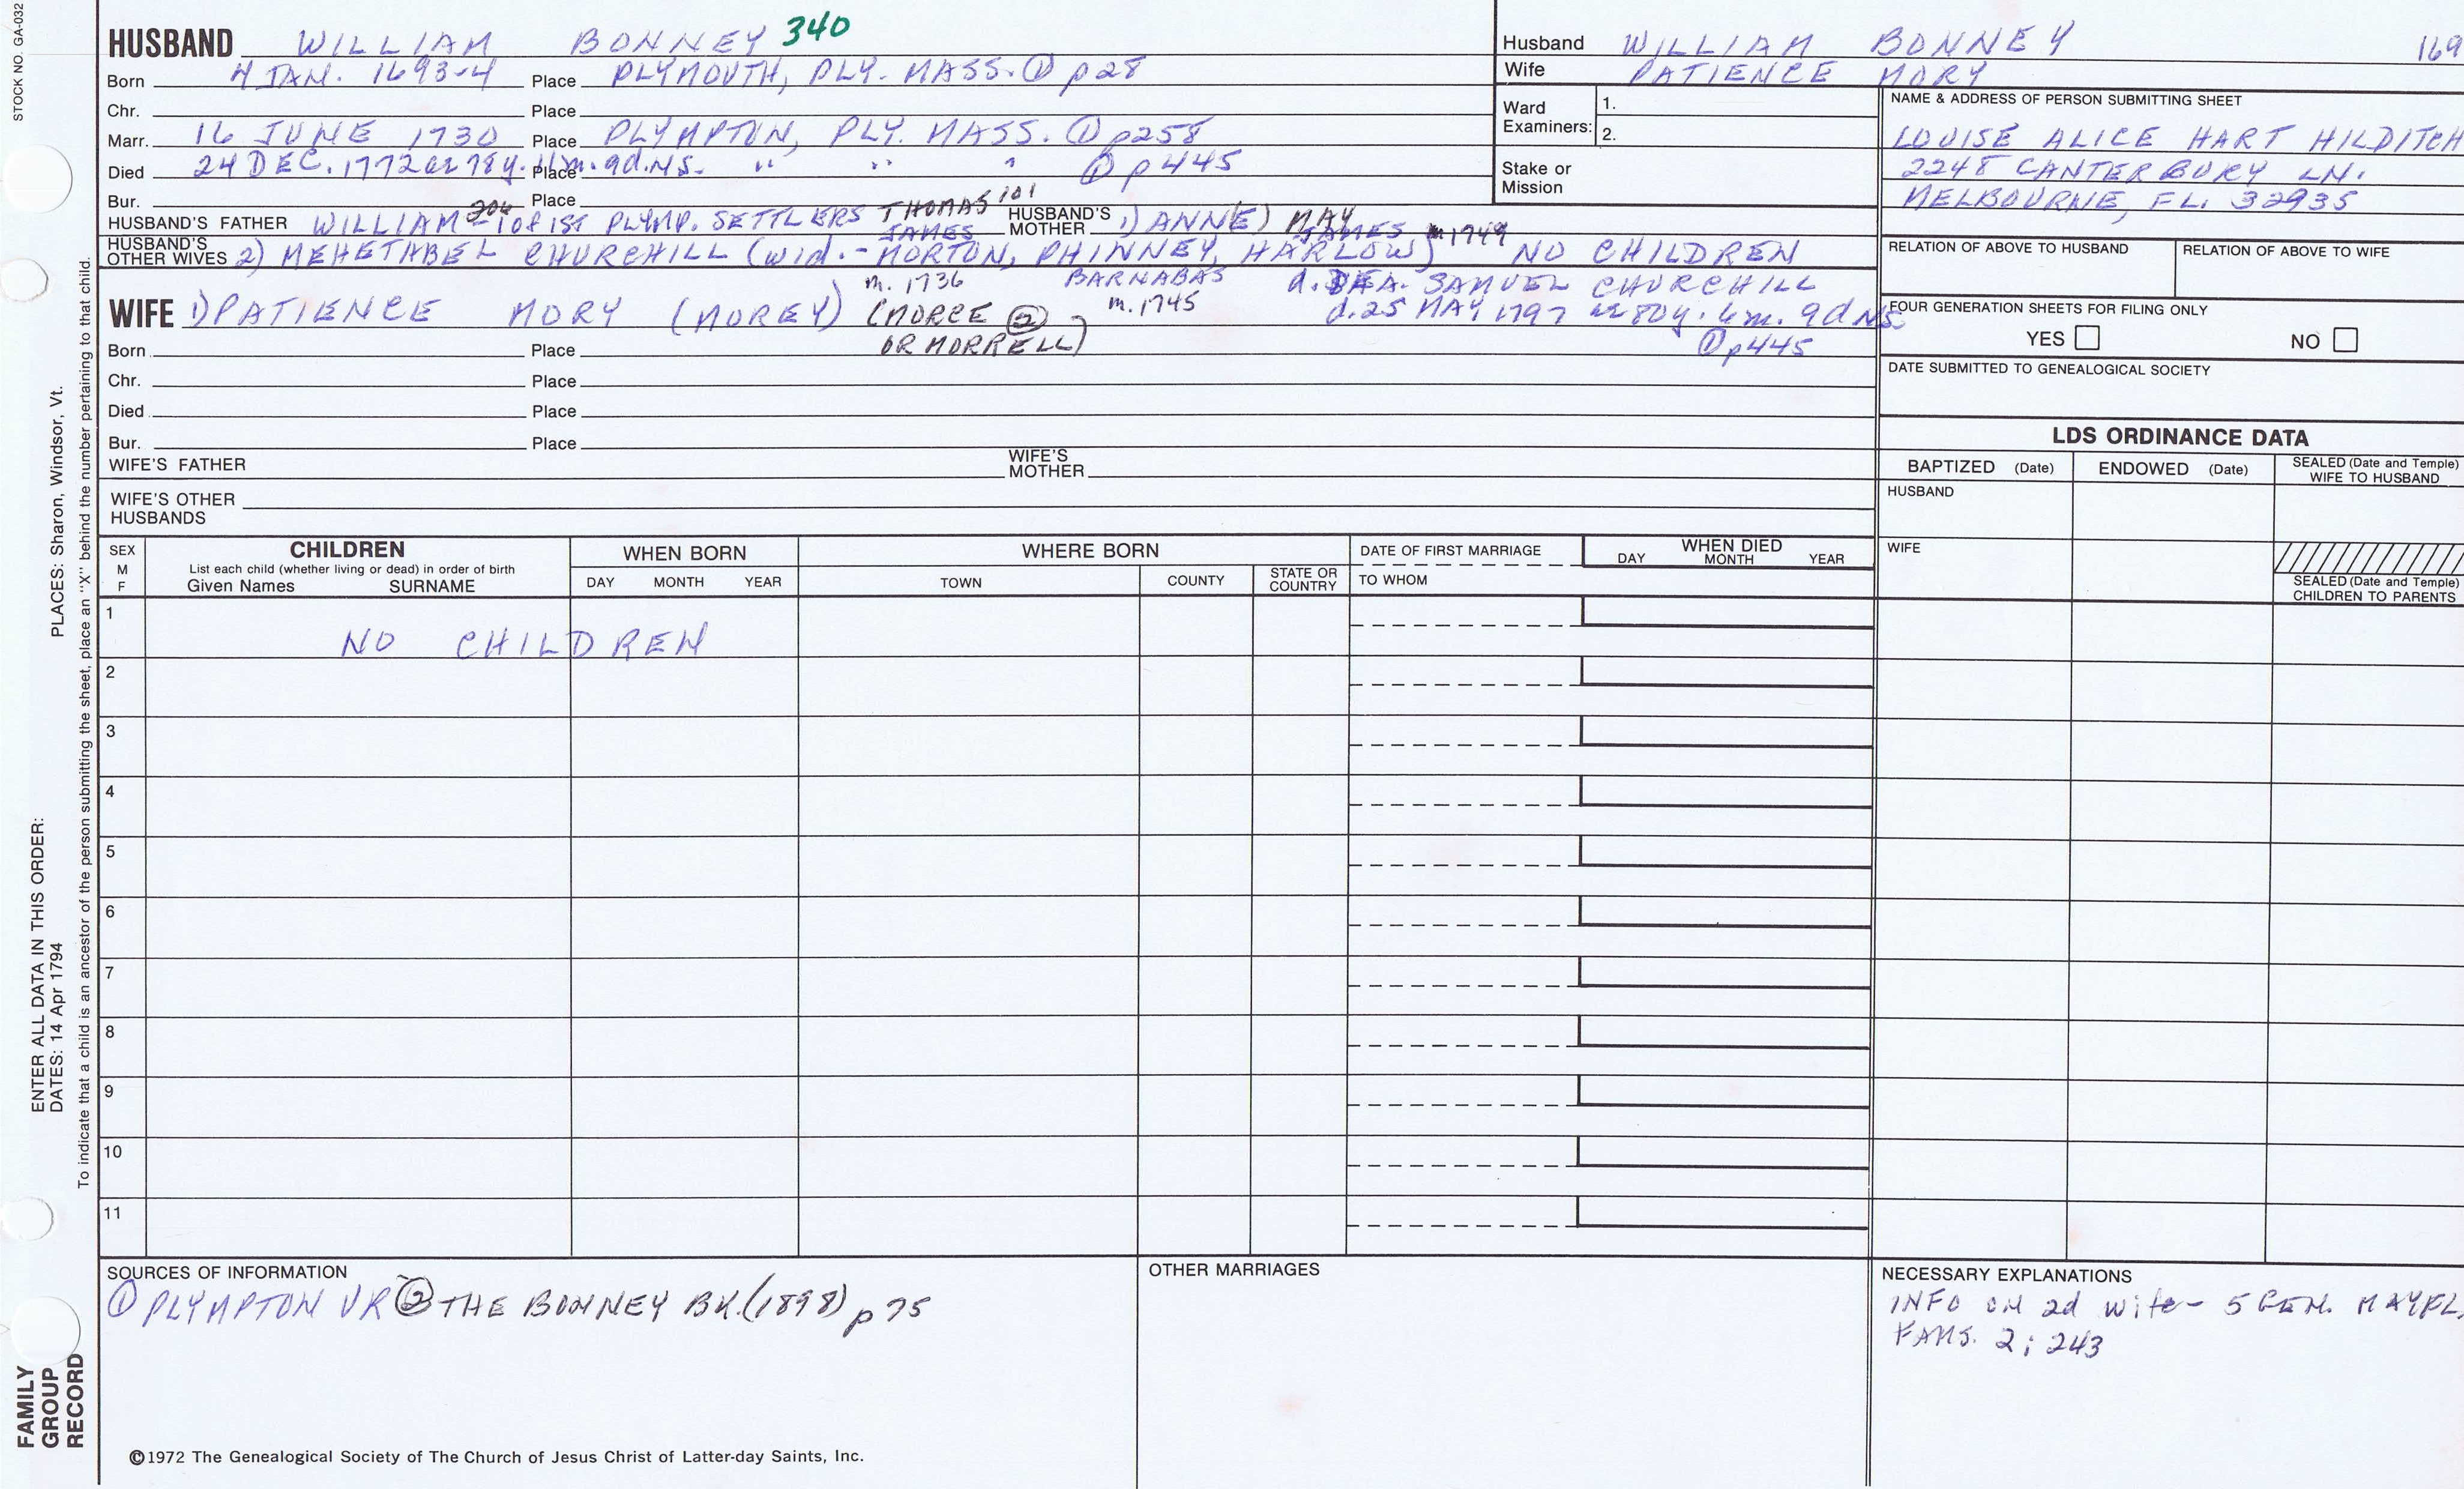 STOCK NO. GA-032
HUSBAND WILLIAM BONNEY 340
Born 4 JAN. 1693-4 Place PLYMOUTH, PLY. MASS. ① p28
Chr. Place
Marr. 16 JUNE 1730 Place PLYMPTON, PLY. MASS. ① p258
Died 24 DEC. 1772 ae 78y. 11m. 9d. N.S. Place " " " ① p445
Bur. Place
HUSBAND'S FATHER WILLIAM 204 - 1 of 1ST PLYMP. SETTLERS THOMAS 101 HUSBAND'S MOTHER 1) ANN(E) MAY
JAMES JAMES m. 1749
HUSBAND'S OTHER WIVES 2) MEHETABEL CHURCHILL (wid. - MORTON, PHINNEY, HARLOW) NO CHILDREN
m. 1736 BARNABAS d. DEA. SAMUEL CHURCHILL
m. 1745 d. 25 MAY 1797 ae 80y. 6m. 9d N.S.
① p445
WIFE 1) PATIENCE MORY (MOREY) (MORCE ②
OR MORRELL)
Born Place
Chr. Place
Died Place
Bur. Place
WIFE'S FATHER WIFE'S MOTHER
WIFE'S OTHER HUSBANDS
Husband WILLIAM BONNEY 169
Wife PATIENCE MORY
Ward Examiners: 1.
2.
Stake or Mission
NAME & ADDRESS OF PERSON SUBMITTING SHEET
LOUISE ALICE HART HILDITCH
2248 CANTERBURY LN.
MELBOURNE, FL. 32935
RELATION OF ABOVE TO HUSBAND RELATION OF ABOVE TO WIFE
FOUR GENERATION SHEETS FOR FILING ONLY
YES NO
DATE SUBMITTED TO GENEALOGICAL SOCIETY
LDS ORDINANCE DATA
BAPTIZED (Date) ENDOWED (Date) SEALED (Date and Temple) WIFE TO HUSBAND
HUSBAND
WIFE
SEALED (Date and Temple) CHILDREN TO PARENTS
SEX M F
CHILDREN
List each child (whether living or dead) in order of birth
Given Names SURNAME
WHEN BORN
DAY MONTH YEAR
WHERE BORN
TOWN COUNTY STATE OR COUNTRY
DATE OF FIRST MARRIAGE
TO WHOM
WHEN DIED
DAY MONTH YEAR
1 NO CHILDREN
2
3
4
5
6
7
8
9
10
11
SOURCES OF INFORMATION
① PLYMPTON VR ② THE BONNEY BK. (1898) p 75
OTHER MARRIAGES
NECESSARY EXPLANATIONS
INFO ON 2d wife - 5 GEN. MAYFL.
FAMS. 2; 243
©1972 The Genealogical Society of The Church of Jesus Christ of Latter-day Saints, Inc.
PLACES: Sharon, Windsor, Vt.
ENTER ALL DATA IN THIS ORDER:
DATES: 14 Apr 1794
To indicate that a child is an ancestor of the person submitting the sheet, place an "X" behind the number pertaining to that child.
FAMILY
GROUP
RECORD